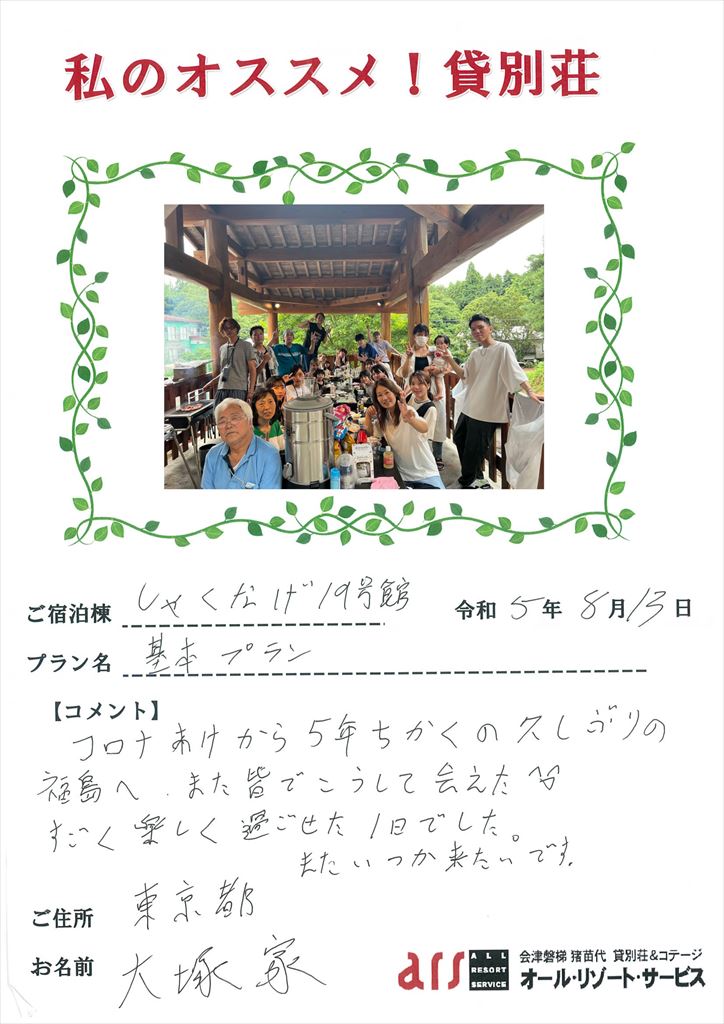 私のオススメ！貸別荘
ご宿泊棟 しゃくなげ19号館 令和 5 年 8 月 13 日
プラン名 基本プラン
【コメント】
コロナあけから5年ちかくの久しぶりの
福島へ．また皆でこうして会えた
すごく楽しく過ごせた1日でした。
またいつか来たいです。
ご住所 東京都
お名前 大塚家
ars ALL RESORT SERVICE 会津磐梯 猪苗代 貸別荘&コテージ
オール・リゾート・サービス